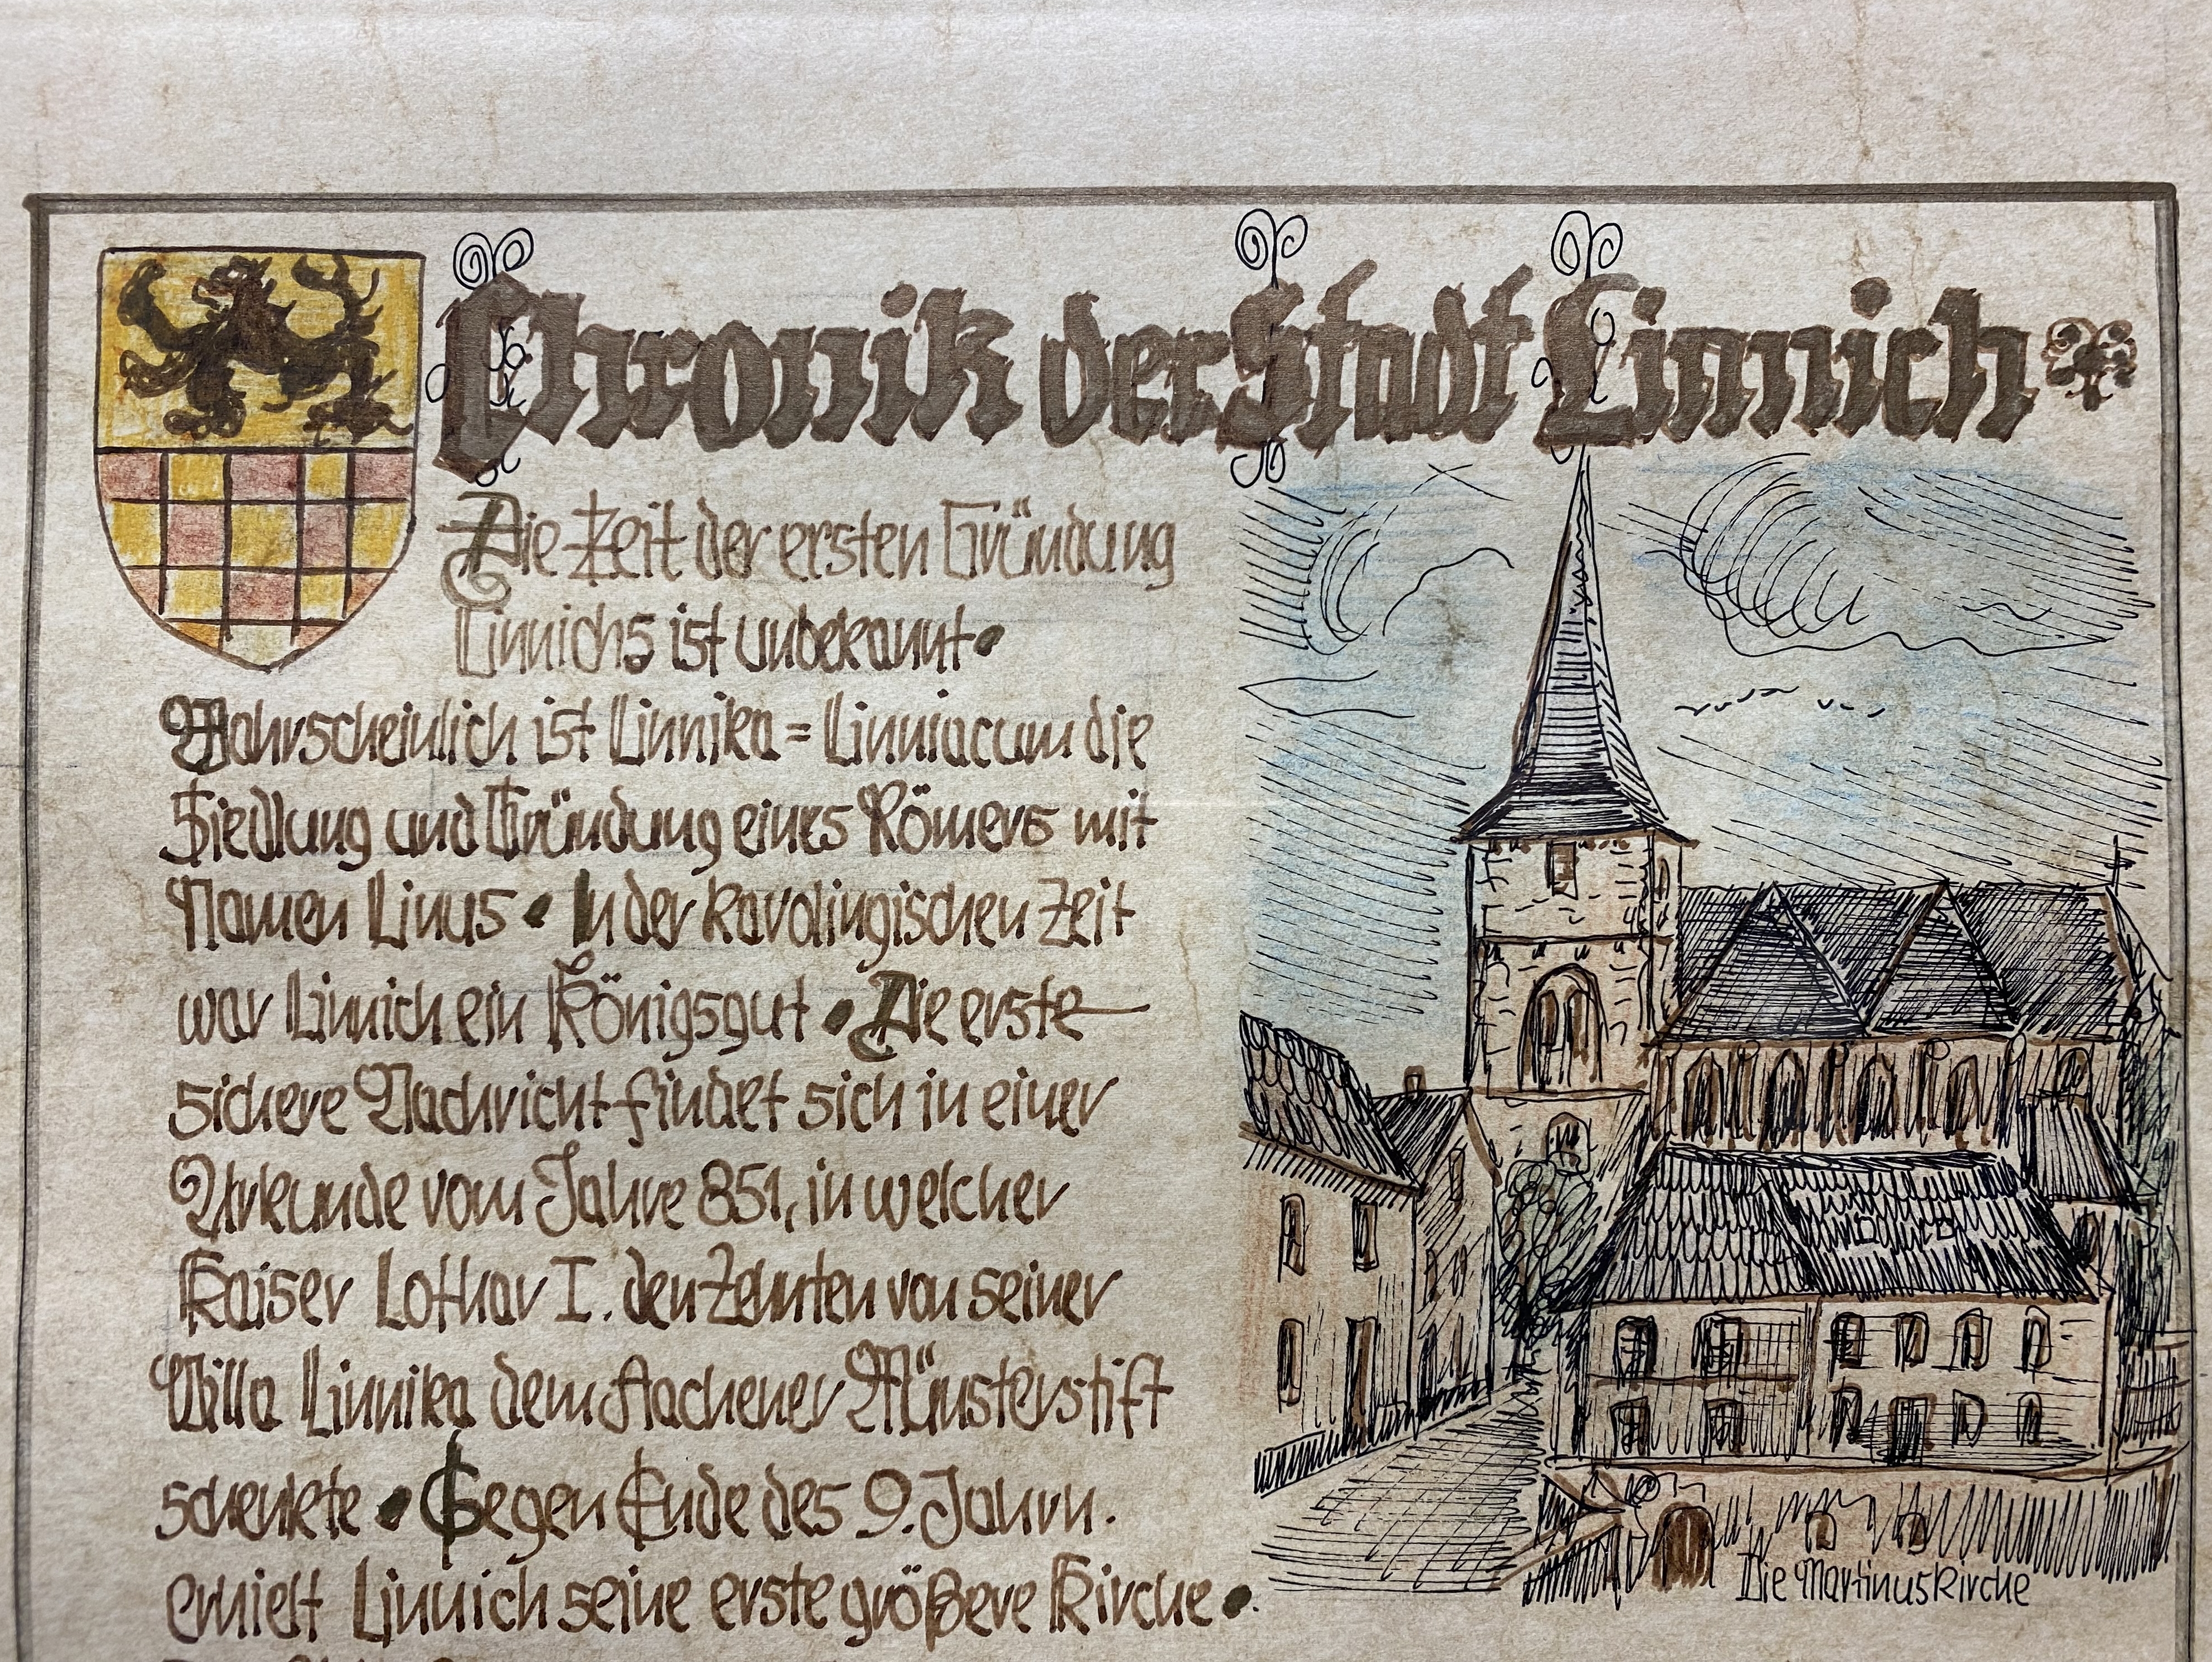 Chronik der Stadt Linnich
Die Zeit der ersten Gründung
Linnichs ist unbekannt •
Wahrscheinlich ist Linnika = Linniacum die
Siedlung und Gründung eines Römers mit
Namen Linus • In der karolingischen Zeit
war Linnich ein Königsgut • Die erste
sichere Nachricht findet sich in einer
Urkunde vom Jahre 851, in welcher
Kaiser Lothar I. den Zehnten von seiner
Villa Linnika dem Aachener Münsterstift
schenkte • Gegen Ende des 9. Jahrh.
erhielt Linnich seine erste größere Kirche •
Die Martinuskirche